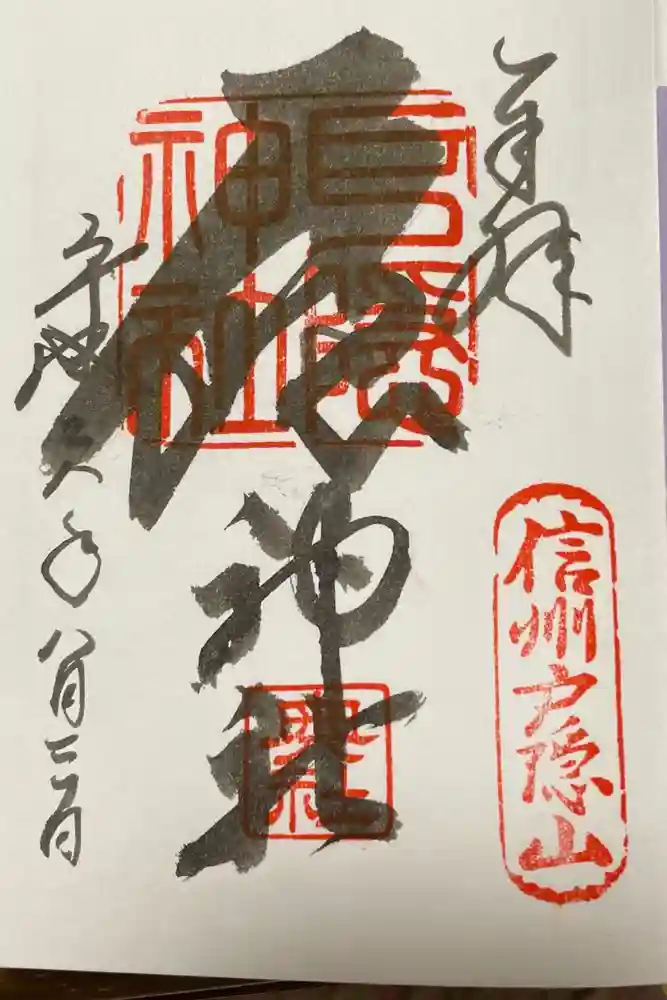 奉拝
信州戸隠山
戸隠神社
戸隠神社
令和六年八月三日